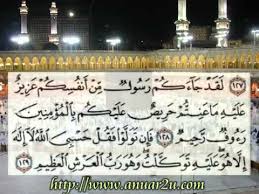 ١٢٧ لَقَدْ جَاءَكُمْ رَسُولٌ مِّنْ أَنفُسِكُمْ عَزِيزٌ
عَلَيْهِ مَا عَنِتُّمْ حَرِيصٌ عَلَيْكُم بِالْمُؤْمِنِينَ
رَءُوفٌ رَّحِيمٌ ١٢٨ فَإِن تَوَلَّوْا فَقُلْ حَسْبِيَ اللَّهُ لَا إِلَٰهَ
إِلَّا هُوَ عَلَيْهِ تَوَكَّلْتُ وَهُوَ رَبُّ الْعَرْشِ الْعَظِيمِ ١٢٩
http://www.anuar2u.com